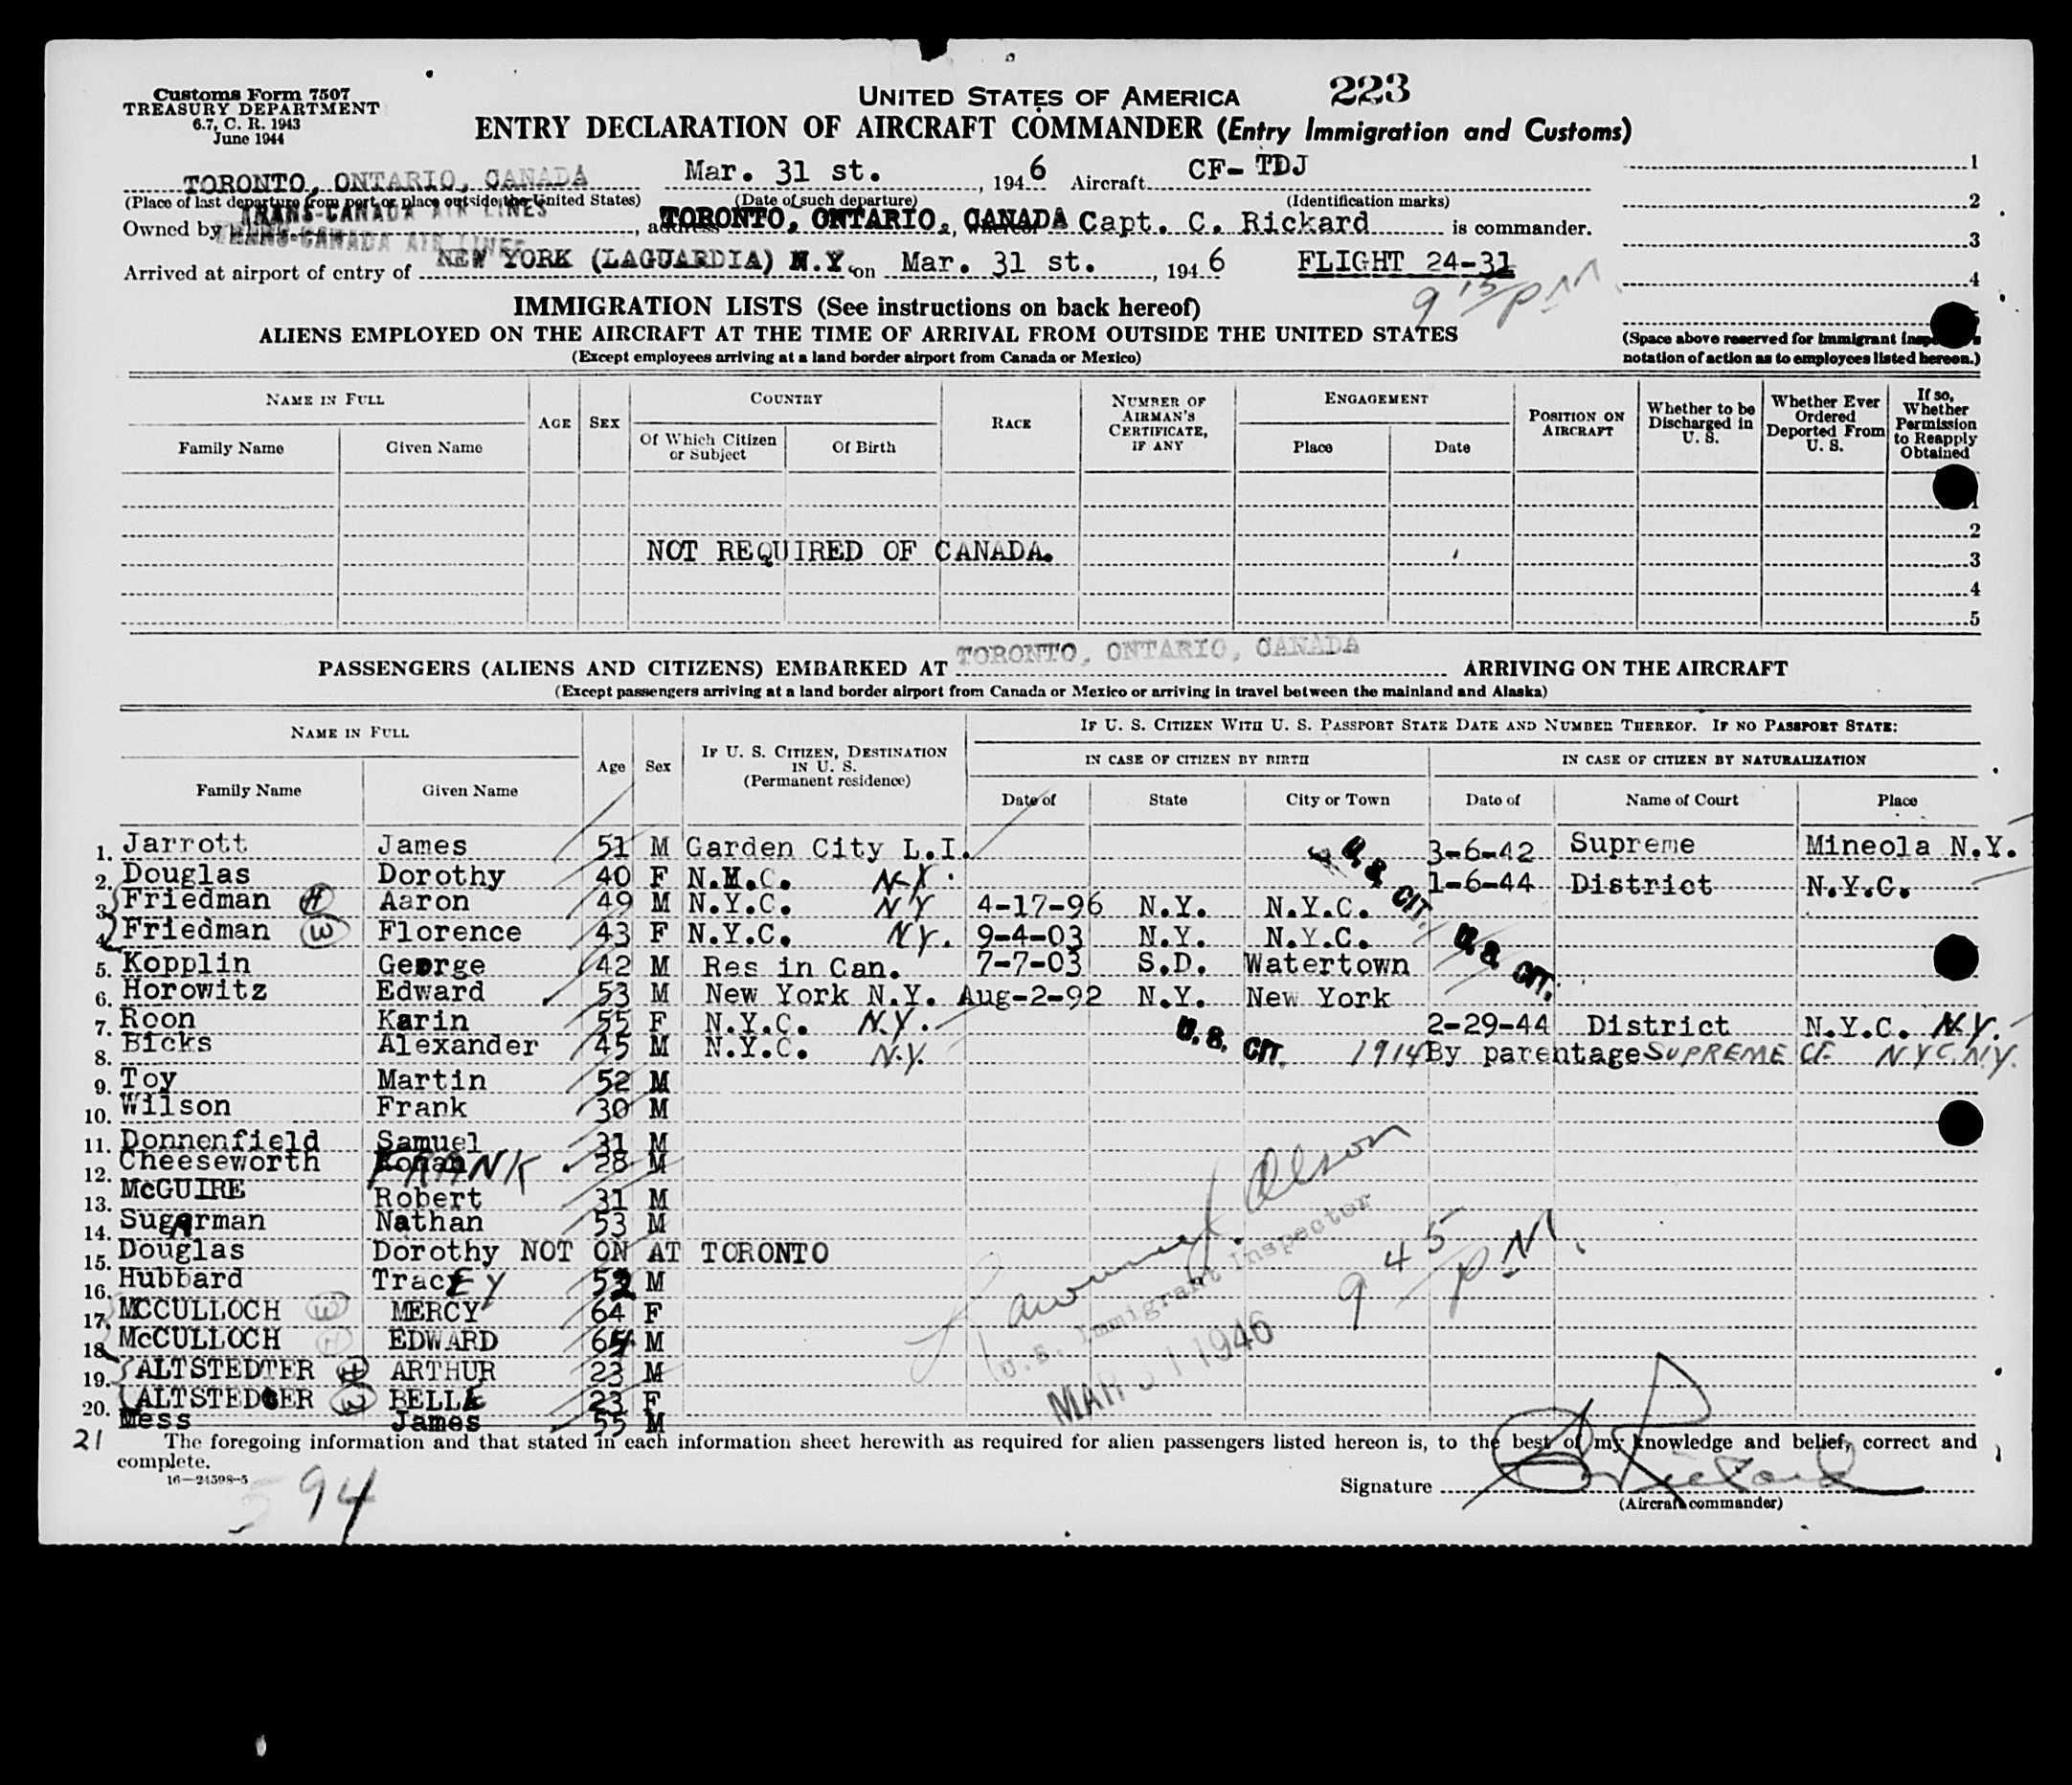 Customs Form 7507
TREASURY DEPARTMENT
6.7, C. R. 1943
June 1944
UNITED STATES OF AMERICA 223
ENTRY DECLARATION OF AIRCRAFT COMMANDER (Entry Immigration and Customs)
TORONTO, ONTARIO, CANADA Mar. 31 st. , 1946 Aircraft CF-TDJ
(Place of last departure from port or place outside the United States) (Date of such departure) (Identification marks)
Owned by TRANS-CANADA AIR LINES, address TORONTO, ONTARIO, CANADA Capt. C. Rickard is commander.
TRANS-CANADA AIR LINES
Arrived at airport of entry of NEW YORK (LAGUARDIA) N.Y. on Mar. 31 st. , 1946 FLIGHT 24-31
9 15/PM
1
2
3
4
IMMIGRATION LISTS (See instructions on back hereof)
ALIENS EMPLOYED ON THE AIRCRAFT AT THE TIME OF ARRIVAL FROM OUTSIDE THE UNITED STATES
(Except employees arriving at a land border airport from Canada or Mexico)
(Space above reserved for immigrant
notation of action as to employees listed hereon.)
NAME IN FULL AGE SEX COUNTRY RACE NUMBER OF AIRMAN'S CERTIFICATE, IF ANY ENGAGEMENT POSITION ON AIRCRAFT Whether to be Discharged in U. S. Whether Ever Ordered Deported From U. S. If so, Whether Permission to Reapply Obtained
Family Name Given Name Of Which Citizen or Subject Of Birth Place Date
1
2
NOT REQUIRED OF CANADA. 3
4
5
PASSENGERS (ALIENS AND CITIZENS) EMBARKED AT TORONTO, ONTARIO, CANADA ARRIVING ON THE AIRCRAFT
(Except passengers arriving at a land border airport from Canada or Mexico or arriving in travel between the mainland and Alaska)
NAME IN FULL Age Sex IF U. S. CITIZEN, DESTINATION IN U. S. (Permanent residence) IF U. S. CITIZEN WITH U. S. PASSPORT STATE DATE AND NUMBER THEREOF. IF NO PASSPORT STATE:
IN CASE OF CITIZEN BY BIRTH IN CASE OF CITIZEN BY NATURALIZATION
Family Name Given Name Date of State City or Town Date of Name of Court Place
1. Jarrott James 51 M Garden City L.I. 3-6-42 Supreme Mineola N.Y.
2. Douglas Dorothy 40 F N.Y.C. N.Y. U.S. CIT. 1-6-44 District N.Y.C.
3. Friedman H Aaron 49 M N.Y.C. NY 4-17-96 N.Y. N.Y.C.
4. Friedman W Florence 43 F N.Y.C. NY. 9-4-03 N.Y. N.Y.C.
5. Kopplin George 42 M Res in Can. 7-7-03 S.D. Watertown U.S. CIT.
6. Horowitz Edward 53 M New York N.Y. Aug-2-92 N.Y. New York
7. Roon Karin 55 F N.Y.C. N.Y. 2-29-44 District N.Y.C. N.Y.
8. Bicks Alexander 45 M N.Y.C. N.Y. U.S. CIT. 1914 By parentage SUPREME CT. N.Y.C. N.Y.
9. Toy Martin 52 M
10. Wilson Frank 30 M
11. Donnenfield Samuel 31 M
12. Cheeseworth FRANK 28 M
13. McGUIRE Robert 31 M
14. Sugarman Nathan 53 M
15. Douglas Dorothy NOT ON AT TORONTO
16. Hubbard Tracey 52 M
17. MCCULLOCH W MERCY 64 F
18. McCULLOCH H EDWARD 64 M
19. ALTSTEDTER H ARTHUR 23 M
20. ALTSTEDGER W BELLE 23 F
21 Mess James 55 M
U.S. Immigrant Inspector
MAR 31 1946
9 45/PM.
The foregoing information and that stated in each information sheet herewith as required for alien passengers listed hereon is, to the best of my knowledge and belief, correct and
complete.
16—24598-5
594
Signature C Rickard
(Aircraft commander)